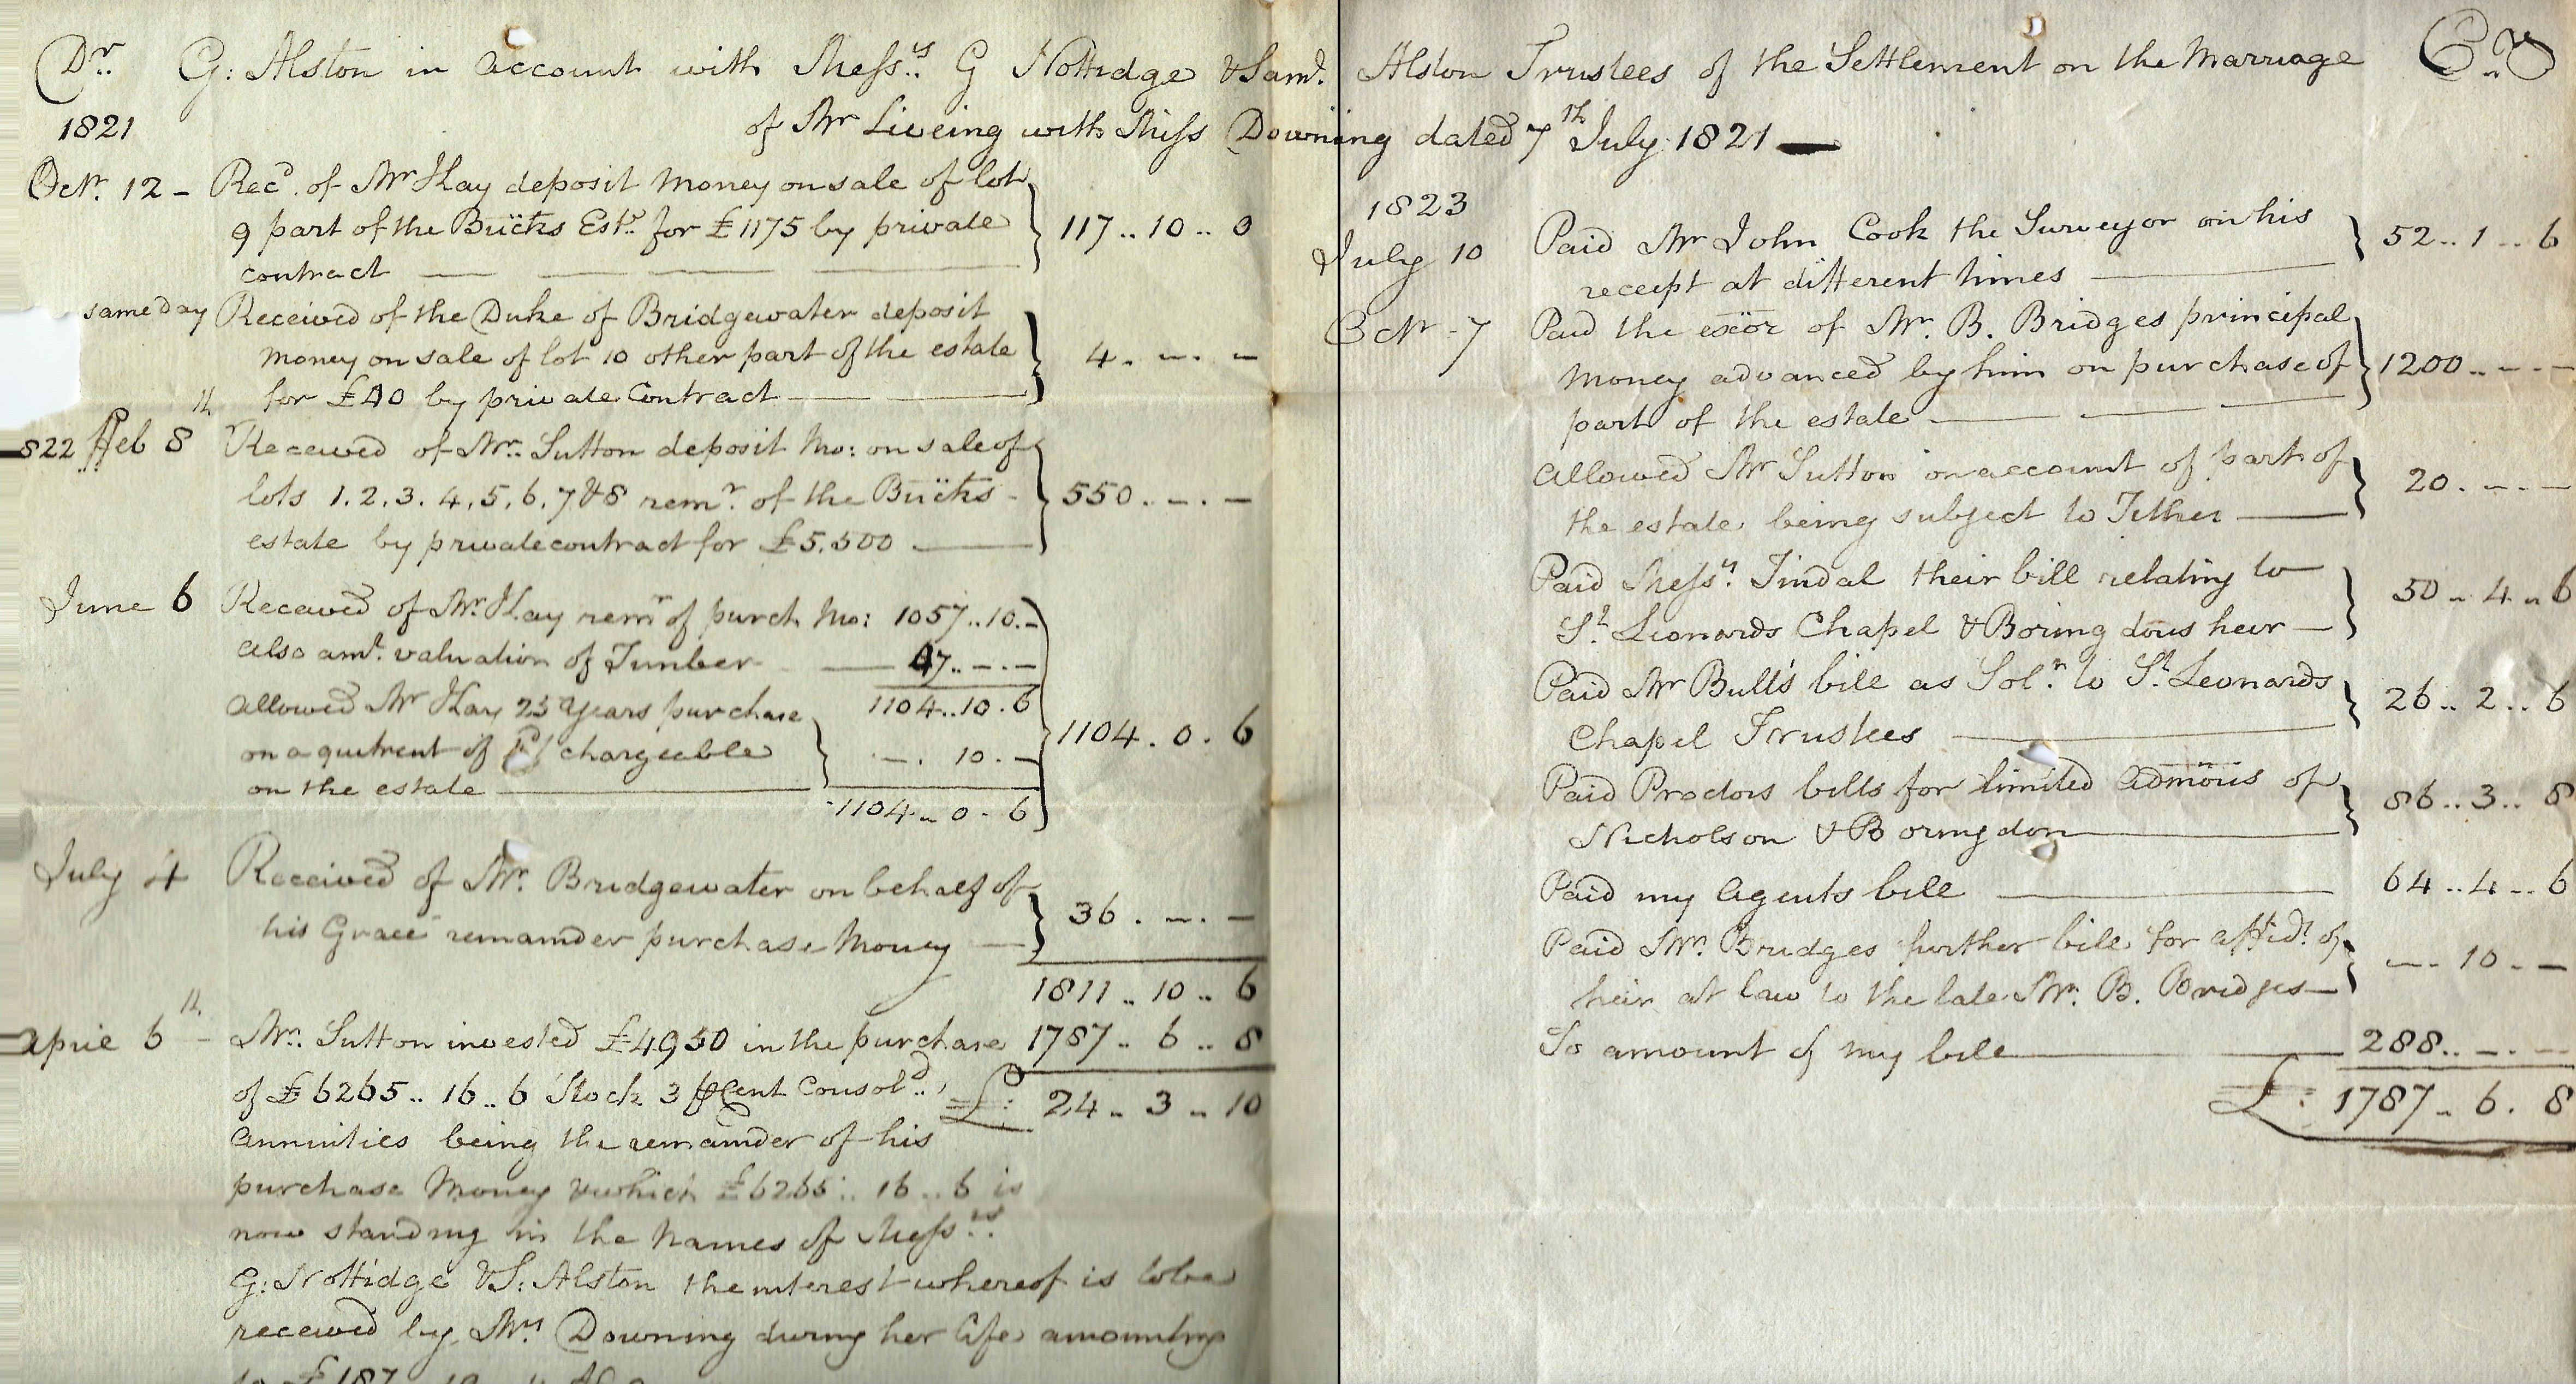 Dr. G: Alston in account with Messrs. G Nottidge & Saml. Alston Trustees of the Settlement on the Marriage Cr.
1821 of Mr Liveing with Miss Downing dated 7th July 1821
Octr. 12 - Recd. of Mr Hay deposit money on sale of lot
9 part of the Bucks Este. for £1175 by private 117 .. 10 .. 0
contract
same day Received of the Duke of Bridgewater deposit
money on sale of lot 10 other part of the estate 4 . - . -
for £40 by private Contract
822 Feb 8th Received of Mr. Sutton deposit mo: on sale of
lots 1. 2. 3. 4. 5. 6. 7 & 8 remr. of the Bucks - 550 . - . -
estate by private contract for £5.500
June 6 Received of Mr. Hay remr of purch mo: 1057 .. 10 . -
also amt. valuation of Timber 47 .. - . -
1104 .. 10 . 6
allowed Mr Hay 25 years purchase
on a quitrent of chargeable - . 10 . - 1104 . 0 . 6
on the estate
1104 .. 0 . 6
July 4 Received of Mr. Bridgewater on behalf of
his Grace remainder purchase money 36 . - . -
1811 .. 10 .. 6
April 6th - Mr. Sutton invested £4950 in the purchase 1787 .. 6 .. 8
of £6265 .. 16 .. 6 Stock 3 p Cent Consold., £: 24 .. 3 .. 10
annuities being the remainder of his
purchase money & which £6265 .. 16 .. 6 is
now standing in the names of Messrs.
G: Nottidge & S: Alston the interest whereof is to be
received by Mrs Downing during her life amounting
to £187
1823
July 10 Paid Mr John Cook the Surveyor on his 52 .. 1 .. 6
receipt at different times
Octr - 7 Paid the exor of Mr. B. Bridges principal
money advanced by him on purchase of 1200 .. - . -
part of the estate
allowed Mr Sutton on account of part of 20 . - . -
the estate being subject to Tithes
Paid Messrs. Tindal their bill relating to 50 .. 4 .. 6
St. Leonards Chapel & Boringdons heir
Paid Mr Bulls bill as Solr. to St. Leonards 26 .. 2 .. 6
Chapel Trustees
Paid Proctors bills for limited admons of 86 .. 3 .. 8
Nicholson & Boringdon
Paid my agents bill 64 .. 4 .. 6
Paid Mr. Bridges further bill for affidt. of - .. 10 . -
heir at law to the late Mr. B. Bridges
To amount of my bill 288 .. - . -
£: 1787 .. 6 . 8